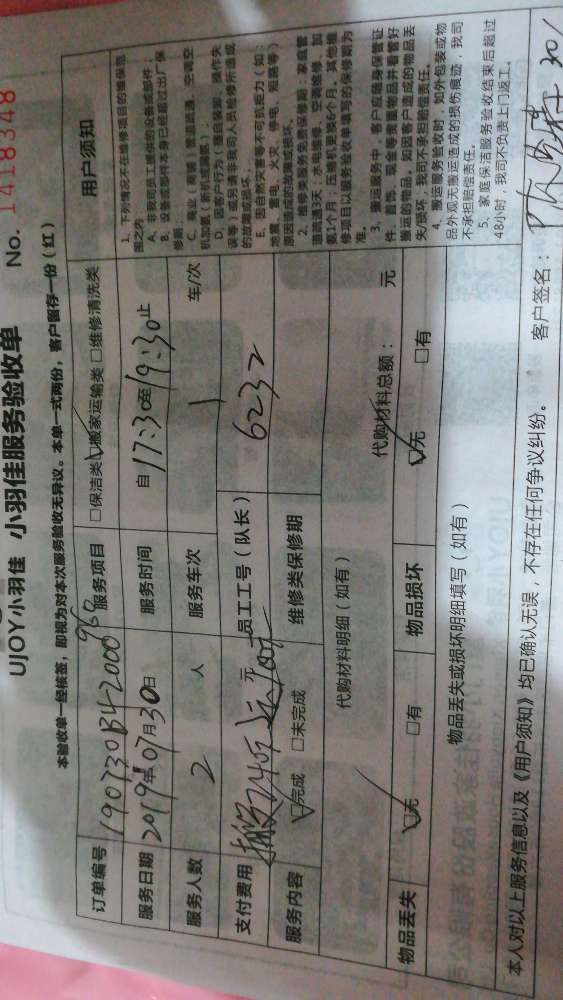 UJOY小羽佳 小羽佳服务验收单
No. 1418348
本验收单一经核签，即视为对本次服务验收无异议。本单一式两份，客户留存一份（红）
订单编号 190730BL2000960 服务项目 □保洁类 ☑搬家运输类 □维修清洗类
服务日期 2019年07月30日 服务时间 自17:30至19:30止
服务人数 2 人 服务车次 1 车/次
支付费用 元 员工工号（队长） 6232
服务内容 ☑完成 □未完成 维修类保修期
代购材料明细（如有）
代购材料总额： 元
物品丢失 ☑无 □有 物品损坏 ☑无 □有
物品丢失或损坏明细填写（如有）
用户须知
1、下列情况不在维修项目的维保范
围之内：
A、非我司员工提供的设备或部件；
B、设备或部件本身已经超过出厂保
修期；
C、商业（用）管道疏通、空调空
机加氨（新机或漏氨）；
D、因客户行为（擅自装卸、操作失
误等）或另请非我司人员检修所造成
的故障或损坏；
E、因自然灾害等不可抗拒力（如：
地震、雷电、火灾、停电、短路等）
原因造成的故障或损坏。
2、维修类服务免费保修期：家庭管
道疏通3天；水电维修、空调维修、加
氨1个月；压缩机更换6个月，其他维
修项目以服务验收单填写的保修期为
准。
3、搬运服务中，客户应随身保管证
件、首饰、现金等贵重物品并看管好
搬运的物品。如因客户造成的物品丢
失/损坏，我司不承担赔偿责任。
4、搬运服务验收时，如外包装或物
品外观无搬运造成的损伤痕迹，我司
不承担赔偿责任。
5、家庭保洁服务验收结束后超过
48小时，我司不负责上门返工。
本人对以上服务信息以及《用户须知》均已确认无误，不存在任何争议纠纷。 客户签名：